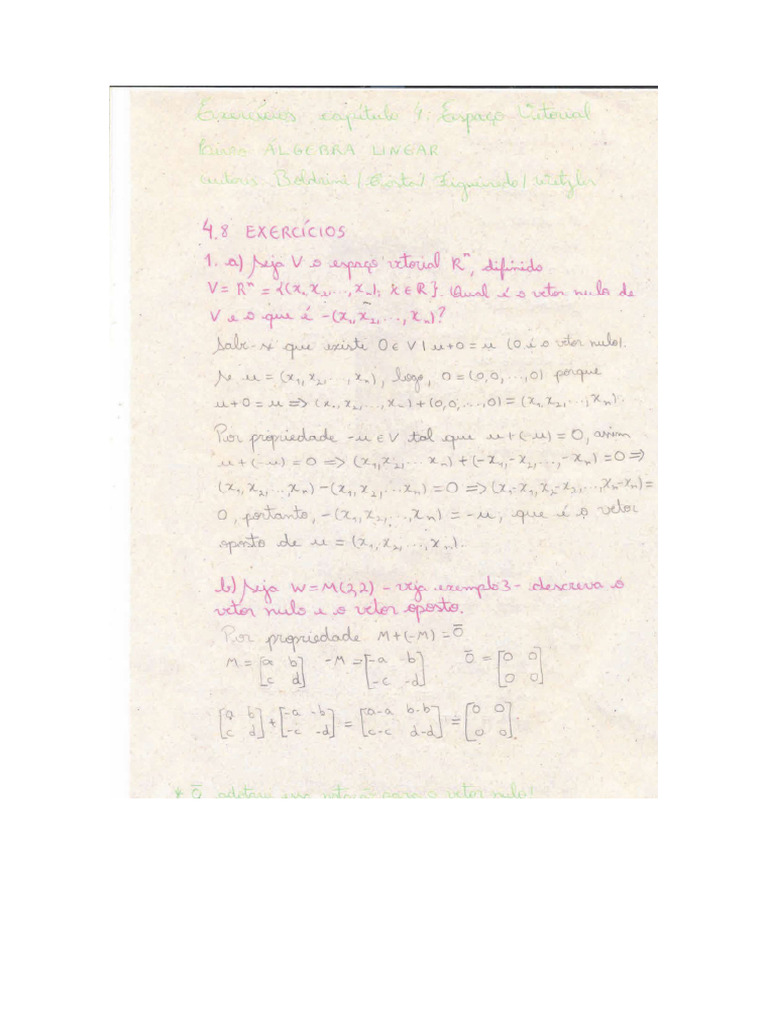 Exercícios capítulo 4: Espaço Vetorial
Livro ÁLGEBRA LINEAR
autores Boldrini / Costa / Figueiredo / Wetzler
4.8 EXERCÍCIOS
1. a) Seja V o espaço vetorial Rⁿ, difinido
V = Rⁿ = {(x₁, x₂, ..., xₙ); xᵢ ∈ R}. Qual é o vetor nulo de
V e o que é -(x₁, x₂, ..., xₙ)?
Sabe-se que existe 0 ∈ V | u+0 = u (0 é o vetor nulo).
Se u = (x₁, x₂, ..., xₙ), logo, 0 = (0,0,...,0) porque
u+0 = u ⇒ (x₁, x₂, ..., xₙ) + (0,0,...,0) = (x₁, x₂, ..., xₙ).
Por propriedade -u ∈ V tal que u+(-u) = 0, assim
u+(-u) = 0 ⇒ (x₁, x₂, ... xₙ) + (-x₁, -x₂, ..., -xₙ) = 0 ⇒
(x₁, x₂, ..., xₙ) - (x₁, x₂, ... xₙ) = 0 ⇒ (x₁-x₁, x₂-x₂, ..., xₙ-xₙ) =
0, portanto, -(x₁, x₂, ..., xₙ) = -u, que é o vetor
oposto de u = (x₁, x₂, ..., xₙ).
b) Seja W = M(2,2) - veja exemplo 3 - descreva o
vetor nulo e o vetor oposto.
Por propriedade M+(-M) = 0̄
M = [a b; c d] -M = [-a b; -c -d] 0̄ = [0 0; 0 0]
[a b; c d] + [-a -b; -c -d] = [a-a b-b; c-c d-d] = [0 0; 0 0].
* 0̄ para o vetor nulo!